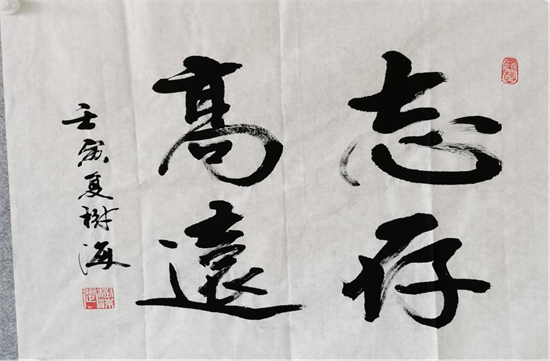 志存
高遠
壬寅夏樹海